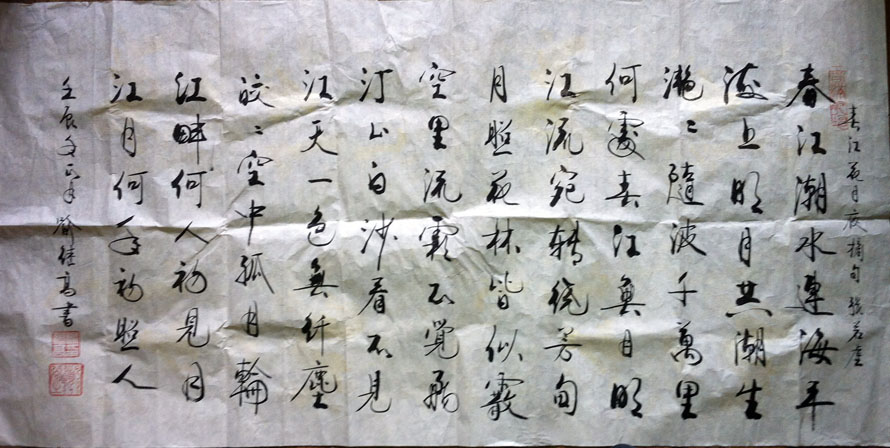 春江花月夜摘句 張若虛
春江潮水連海平
海上明月共潮生
滟〻隨波千萬里
何處春江無月明
江流宛转绕芳甸
月照花林皆似霰
空里流霜不覺飛
汀上白沙看不見
江天一色無纤塵
皎〻空中孤月輪
江畔何人初見月
江月何年初照人
壬辰年正月 喻继高書